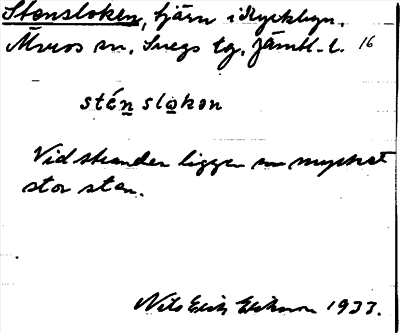 Stensloken, tjärn i Kyrkbyn.
Älvros sn, Svegs tg, Jämtl. l. 16
sténslokən
Vid stranden ligger en mycket
stor sten.
Nils Erik Eriksson 1933.